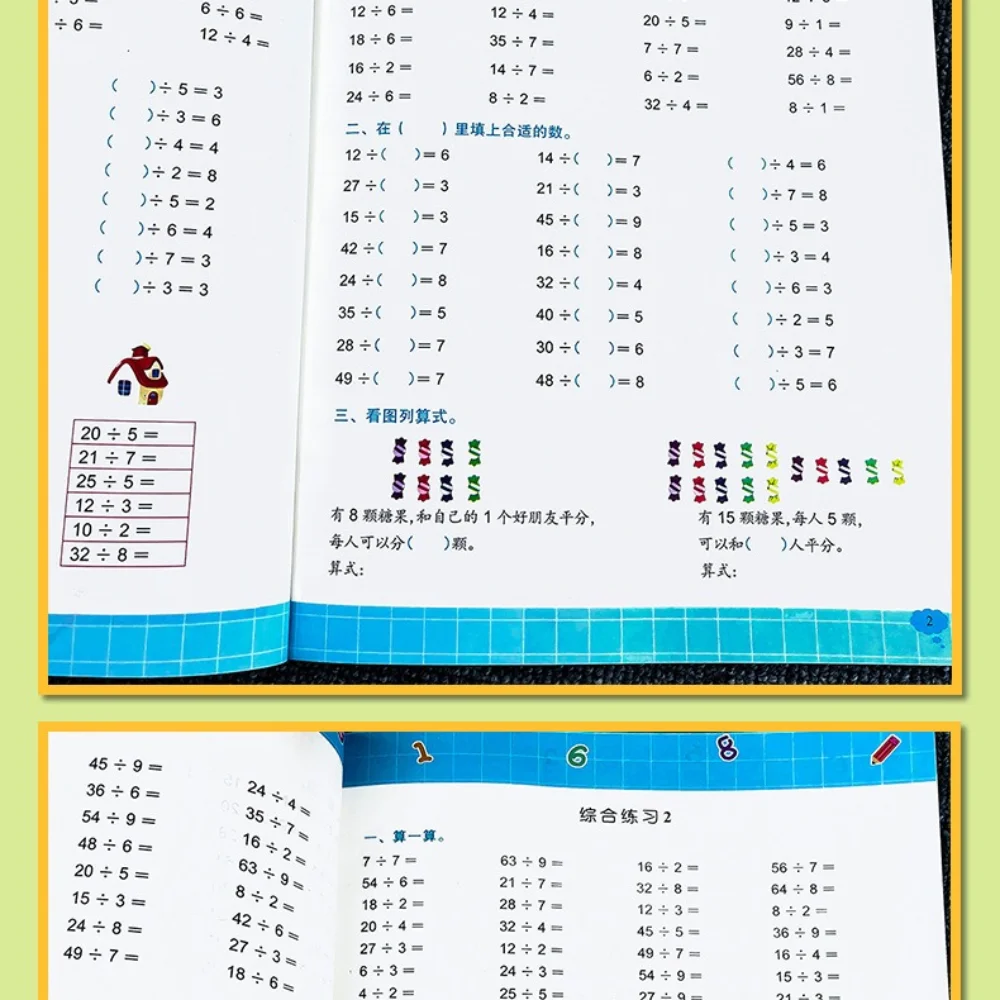 ÷ 6 =
6 ÷ 6 =
12 ÷ 4 =
( )÷ 5 = 3
( )÷ 3 = 6
( )÷ 4 = 4
( )÷ 2 = 8
( )÷ 5 = 2
( )÷ 6 = 4
( )÷ 7 = 3
( )÷ 3 = 3
20 ÷ 5 =
21 ÷ 7 =
25 ÷ 5 =
12 ÷ 3 =
10 ÷ 2 =
32 ÷ 8 =
12 ÷ 6 = 12 ÷ 4 = 20 ÷ 5 = 9 ÷ 1 =
18 ÷ 6 = 35 ÷ 7 = 7 ÷ 7 = 28 ÷ 4 =
16 ÷ 2 = 14 ÷ 7 = 6 ÷ 2 = 56 ÷ 8 =
24 ÷ 6 = 8 ÷ 2 = 32 ÷ 4 = 8 ÷ 1 =
二、在( )里填上合适的数。
12 ÷( )= 6 14 ÷( )= 7 ( )÷ 4 = 6
27 ÷( )= 3 21 ÷( )= 3 ( )÷ 7 = 8
15 ÷( )= 3 45 ÷( )= 9 ( )÷ 5 = 3
42 ÷( )= 7 16 ÷( )= 8 ( )÷ 3 = 4
24 ÷( )= 8 32 ÷( )= 4 ( )÷ 6 = 3
35 ÷( )= 5 40 ÷( )= 5 ( )÷ 2 = 5
28 ÷( )= 7 30 ÷( )= 6 ( )÷ 3 = 7
49 ÷( )= 7 48 ÷( )= 8 ( )÷ 5 = 6
三、看图列算式。
有 8 颗糖果,和自己的 1 个好朋友平分,
每人可以分( )颗。
算式:
有 15 颗糖果,每人 5 颗,
可以和( )人平分。
算式:
2
45 ÷ 9 =
36 ÷ 6 =
54 ÷ 9 =
48 ÷ 6 =
20 ÷ 5 =
15 ÷ 3 =
24 ÷ 8 =
49 ÷ 7 =
24 ÷ 4 =
35 ÷ 7 =
16 ÷ 2 =
63 ÷ 9 =
8 ÷ 2 =
42 ÷ 6 =
27 ÷ 3 =
18 ÷ 6 =
1 6 8
综合练习2
一、算一算。
7 ÷ 7 = 63 ÷ 9 = 16 ÷ 2 = 56 ÷ 7 =
54 ÷ 6 = 21 ÷ 7 = 32 ÷ 8 = 64 ÷ 8 =
18 ÷ 2 = 28 ÷ 7 = 12 ÷ 3 = 8 ÷ 2 =
20 ÷ 4 = 32 ÷ 4 = 45 ÷ 5 = 36 ÷ 9 =
27 ÷ 3 = 12 ÷ 2 = 49 ÷ 7 = 16 ÷ 4 =
6 ÷ 3 = 24 ÷ 3 = 54 ÷ 9 = 15 ÷ 3 =
4 ÷ 2 = 25 ÷ 5 = 27 ÷ 9 = 21 ÷ 3 =